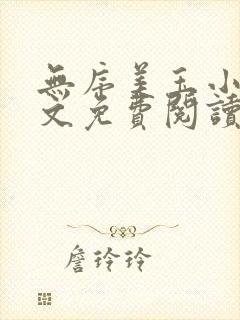 無虎美玉小
文免費閱讀
詹玲玲